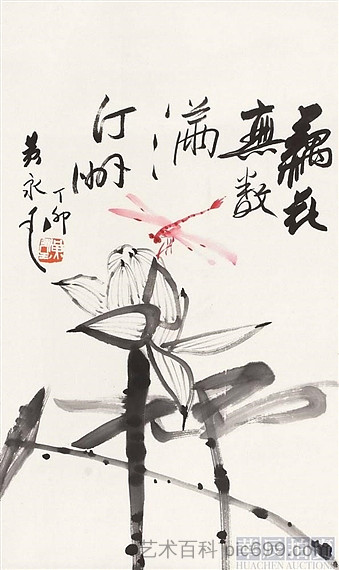 藕花
無数
滿
汀洲
丁卯
黄永玉
艺术百科 pic699.com
HUACHEN AUCTIONS